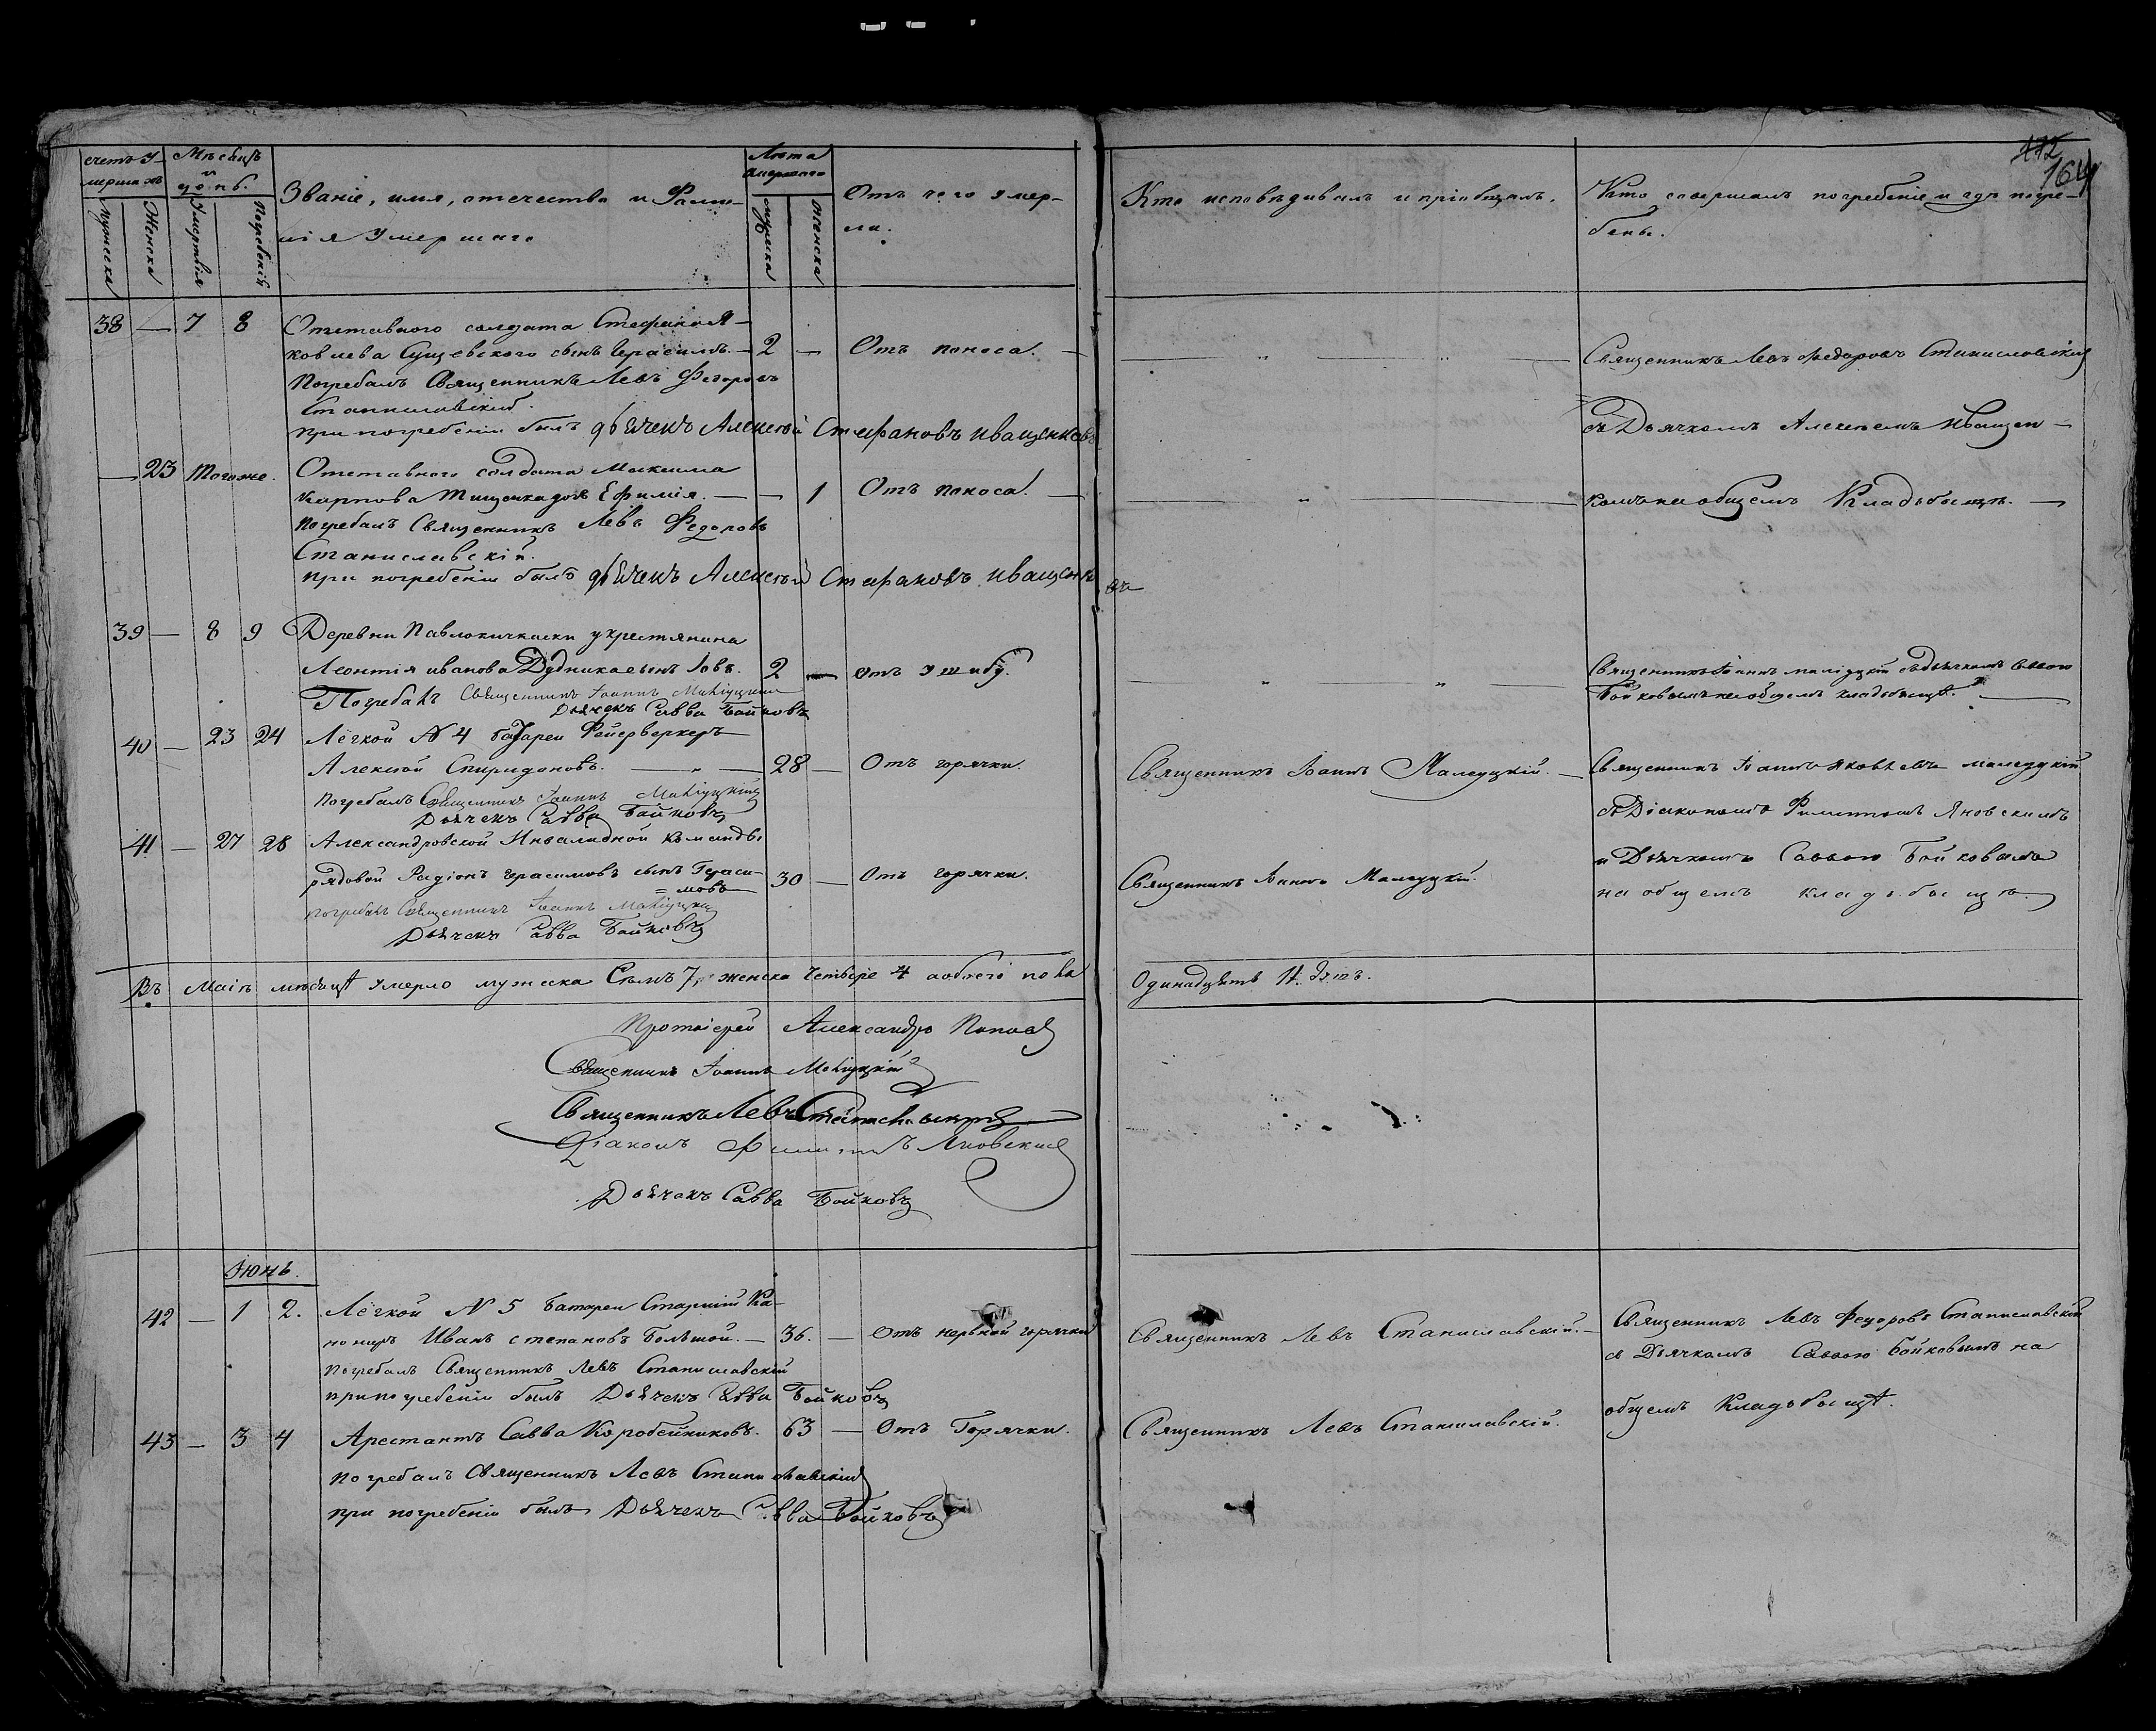 172
164
счетъ у-
мершихъ
Мѣсяцъ
и
день.
Званіе, имя, отечество и Фами-
лія Умершаго
Лѣта
Умершаго
Отъ чего умер-
ли.
Кто исповѣдивалъ и пріобщалъ.
Кто совершалъ погребеніе и гдѣ погре-
бены.
Мужеска
Женска
Умертвія
Погребенія
мужеска
женска
38 — 7 8 Отставного солдата Стефана Я-
ковлева Сущевского сынъ Герасимъ. — 2 — Отъ поноса. —
Священникъ Левъ Федоровъ Станиславскій
Погребалъ Священникъ Левъ Федоровъ
Станиславскій.
при погребеніи былъ дьячекъ Алексѣй Стефановъ Иващенковъ
съ Дьячкомъ Алексѣемъ Иващен-
— 23 Тогоже. Отставного солдата Максима
Карпова Тищенка дочь Ефимія. — — 1 Отъ поноса. —
комъ на общемъ Кладьбыщѣ. —
погребалъ Священникъ Левъ Федоровъ
Станиславскій.
при погребеніи былъ дьячекъ Алексѣй Стефановъ Иващенк
овъ
39 — 8 9 Деревни Павлокичкаски у крестянина
Леонтія иванова Дудника сынъ Іовъ. 2 — отъ ушибу.
Священникъ Іоаннъ Малѣцкій съ дьячкомъ Саввою
Бойковымъ на общемъ кладбыщѣ. —
Погребалъ Священникъ Іоаннъ
Дьячекъ Савва Бойковъ
40 — 23 24 Лёгкой N 4 батареи Фейерверкеръ
Алексѣй Спиридоновъ. — „ — 28 — Отъ горячки.
Священникъ Іоаннъ —
Священникъ Іоаннъ Яковлевъ
погребалъ Священникъ Іоаннъ
Дьячекъ Савва Бойковъ
съ Діакономъ Филиппомъ Яновскимъ
41 — 27 28 Александровской Инвалидной команды
рядовой Радіонъ Герасимовъ сынъ Гераси-
=мовъ 30 — Отъ горячки.
Священникъ Іоаннъ
и Дьячкомъ Саввою Бойковымъ
на общемъ кладьбыщѣ.
погребалъ Священникъ Іоаннъ
Дьячекъ Савва Бойковъ
Въ Маіѣ мѣсяцѣ умерло мужеска Семъ 7, женска Четыре 4 а обоего пола
Одинадцять 11. Душъ.
Протоіерей Александръ Поповъ
Священникъ Іоаннъ
Священникъ Левъ Станиславскій
Діаконъ Филиппъ Яновскій
Дьячекъ Савва Бойковъ
Іюнь.
42 — 1 2. Лёгкой N 5 батареи Старшій Ка-
нониръ Иванъ степановъ Большой. — 36. — Отъ нервной горячки
Священникъ Левъ Станиславскій. —
Священникъ Левъ Федоровъ Станиславскій
съ Дьячкомъ Саввою Бойковымъ на
общемъ Кладьбыщѣ.
погребалъ Священникъ Левъ Станиславскій
при погребеніи былъ Дьячекъ Савва Бойковъ
43 — 3 4 Арестантъ Савва Коробейниковъ. 63 — Отъ Горячки.
Священникъ Левъ Станиславскій.
погребалъ Священникъ Левъ Станиславскій
при погребеніи былъ Дьячекъ Савва Бойковъ